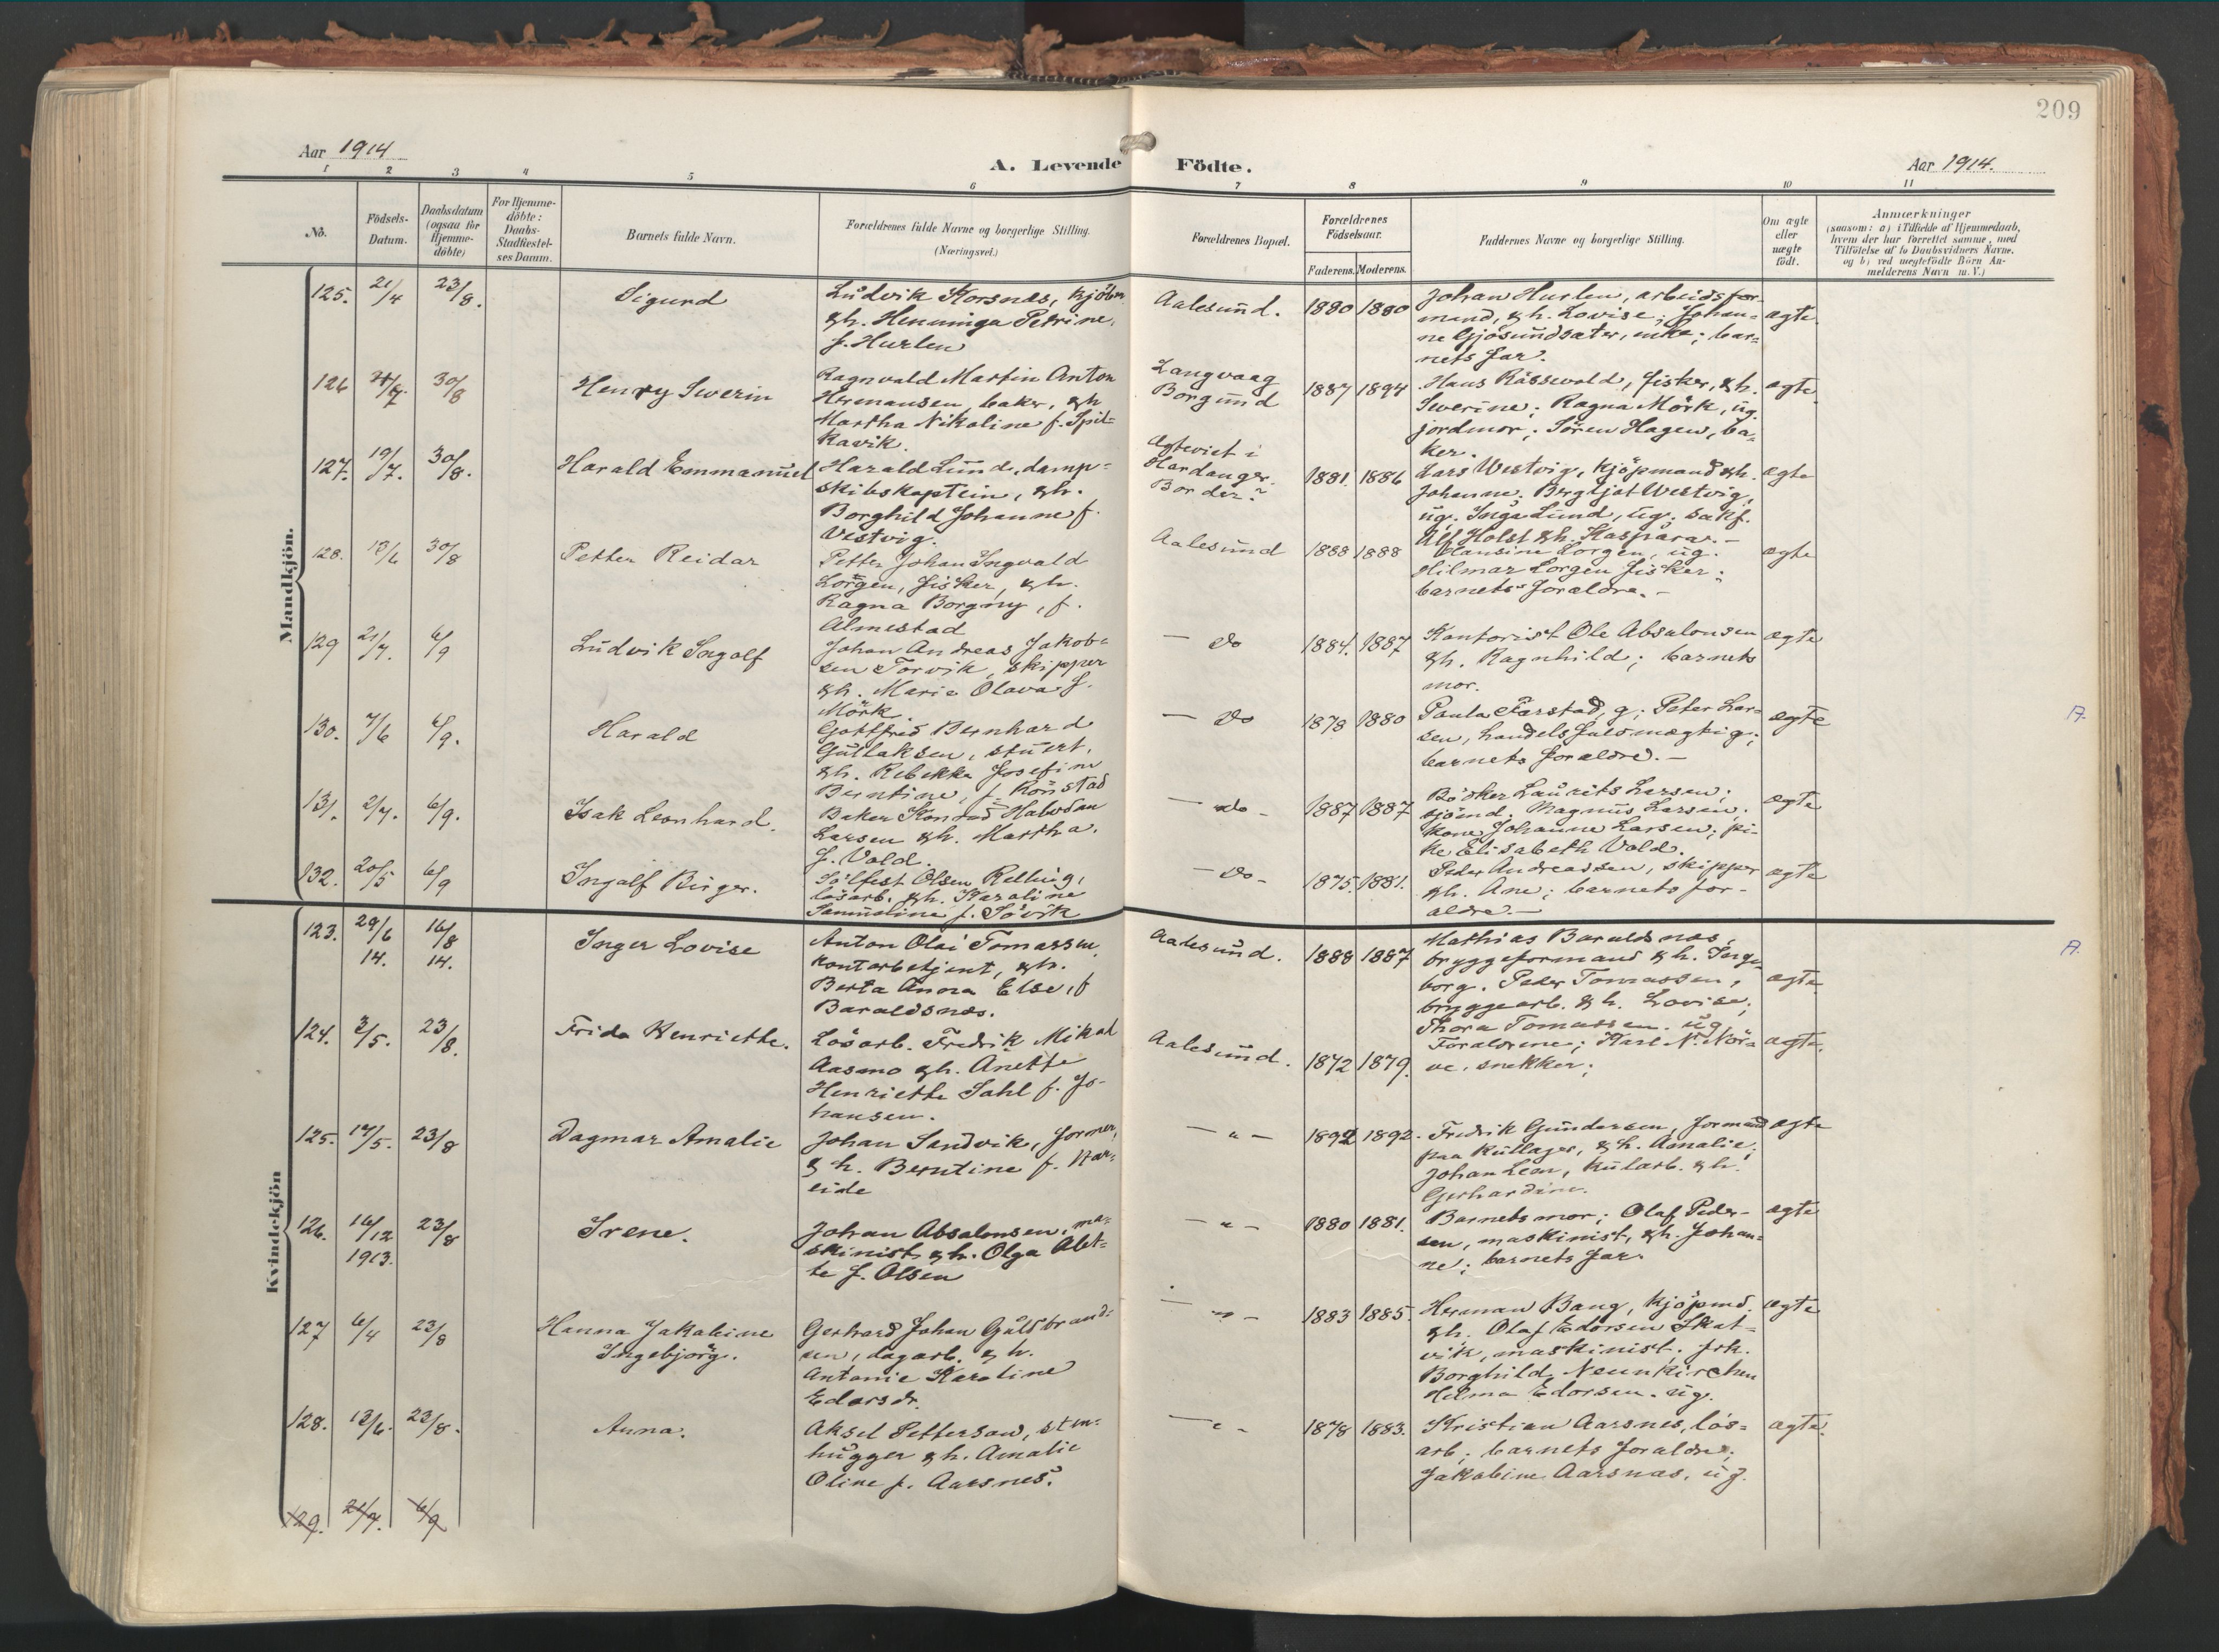 209
Aar 1914
A. Levende Födte.
Aar 1914.
1 2 3 4 5 6 7 8 9 10 11
No.
Födsels-Datum.
Daabsdatum (ogsaa for Hjemme-döbte)
For Hjemme-döbte: Daabs-Stadfæstel-ses Datum.
Barnets fulde Navn.
Forældrenes fulde Navne og borgerlige Stilling.
(Næringsvei.)
Forældrenes Bopæl.
Forældrenes Födselsaar.
Faderens. Moderens.
Faddernes Navne og borgerlige Stilling.
Om ægte eller uægte födt.
Anmærkninger
(saasom: a) i Tilfælde af Hjemmedaab,
hvem der har forrettet samme, med
Tilföielse af to Daabsvidners Navne.
og b) ved uægtefödte Börn An-
melderens Navn m. V.)
Mandkjön.
125. 21/4 23/8. Sigurd
Ludvik Korsnæs, kjöbm.
& h. Henninga Petrine,
f. Hurlen
Aalesund. 1880 1880
Johan Hurlen, arbeidsfor-
mand, & h. Lovise; Johan-
ne Gjösundsæter, enke; bar-
nets far.
ægte.
126 30/8 Henry Severin
Ragnvald Martin Anton
Hermansen, baker, & h
Martha Nikoline f. Spil-
kavik.
Langvaag
Borgund
1887 1894
Hans Rössevold, fisker, & h.
Severine; Ragna Mörk, ug.
jordmor; Sören Hagen, ba-
ker.
ægte.
127. 19/7. 30/8. Harald Emmanuel
Harald Lund, damp-
skibskaptein, & h.
Borghild Johanne f.
Vestvig.
i
Hardanger.
1881. 1886
Lars Westvig, kjöpmand & h.
Johanne; Bergljot Westvig,
ug. Inga Lund, ug. sakf.
Alf Holst & h. Kaspara. –
ægte
128. 13/6 30/8 Petter Reidar
Petter Johan Ingvald
Lorgen, fisker, & h.
Ragna Borgny, f.
Almestad
Aalesund 1888 1888
Hansine Lorgen, ug.
Hilmar Lorgen fisker;
barnets forældre. –
ægte
129 21/7. 6/9 Ludvik Ingolf
Johan Andreas Jakob-
sen Torvik, skipper
& h. Marie Olava f.
Mörk.
— do 1884. 1887
Kontorist Ole Absalonsen
& h. Ragnhild; barnets
mor.
ægte
130. 7/6 6/9. Harald
Gottfred Bernhard
Gullaksen, stuert,
& h. Rebekka Josefine
Berntine, f. Rönstad
— do 1878 1880
Paula Farstad, g; Peter Lar-
sen, handelsfuldmægtig;
barnets forældre. –
ægte A.
131. 2/7. 6/9. Isak Leonhard.
Baker Konrad Halvdan
Larsen & h. Martha,
f. Vold.
— do – 1887 1887
Bödker Laurits Larsen;
sjömd. Magnus Larsen;
kone Johanne Larsen; pi-
ke Elisabeth Vold.
ægte
132. 20/5 6/9 Ingolf Birger.
Sölfest Olsen Relling,
lösarb. & h. Karoline
Samueline f. Sövik
— do – 1875. 1881.
Peder Andreassen, skipper
& h. Ane; barnets for-
ældre. –
ægte
Kvindekjön
123. 29/6 14. 16/8 14. Inger Lovise
Anton Olai Tomassen,
kontorbetjent, & h.
Berta Anna Else, f
Baraldsnæs.
Aalesund. 1888 1887
Mathias Baraldsnæs,
bryggeformand & h. Inge-
borg. Peder Tomassen,
bryggearb. & h. Lovise;
Thora Tomassen. ug
ægte A.
124. 3/5. 23/8. Frida Henriette.
Lösarb. Fredrik Mikal
Aasmo & h. Anette
Henriette Dahl f. Jo-
hansen.
Aalesund. 1872 1879.
Forældrene; Karl N. Nör-
ve, snekker;
ægte.
125. 17/5. 23/8 Dagmar Amalie
Johan Sandvik, former,
& h. Berntine f. Kar-
eide
— " — 1892 1892.
Fredrik Gundersen, formand
paa kullager, & h. Amalie;
Johan Leon, kularb. & h.
Gerhardine.
ægte
126. 16/12 1913. 23/8 Irene.
Johan Absalonsen, ma-
skinist & h. Olga Alet-
te f. Olsen
— " — 1880 1881.
Barnets mor; Olaf Peder-
sen, maskinist, & h. Johan-
ne; barnets far.
ægte
127 6/4 23/8 Hanna Jakobine
Ingebjörg.
Gerhard Johan Gulbrand-
sen, dagarb. & h.
Antonie Karoline
Edorsdr.
— " — 1883 1885.
Herman Bang, kjöpmd.
& h. Olaf Edorsen Skot-
vik, maskinist. frk.
Borghild Neunkirchen
Helma Edorsen. ug.
ægte
128. 13/6. 23/8. Anna.
Aksel Petterson, sten-
hugger & h. Amalie
Oline f. Aarsnes.
— " – 1878 1883.
Kristian Aarsnes, lös-
arb; barnets forældre;
Jakobine Aarsnæs, ug.
ægte.
129. 21/7. 6/9